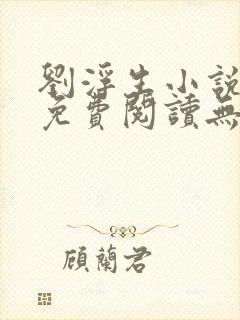 劉浮生小說
免費閱讀無
顧蘭君